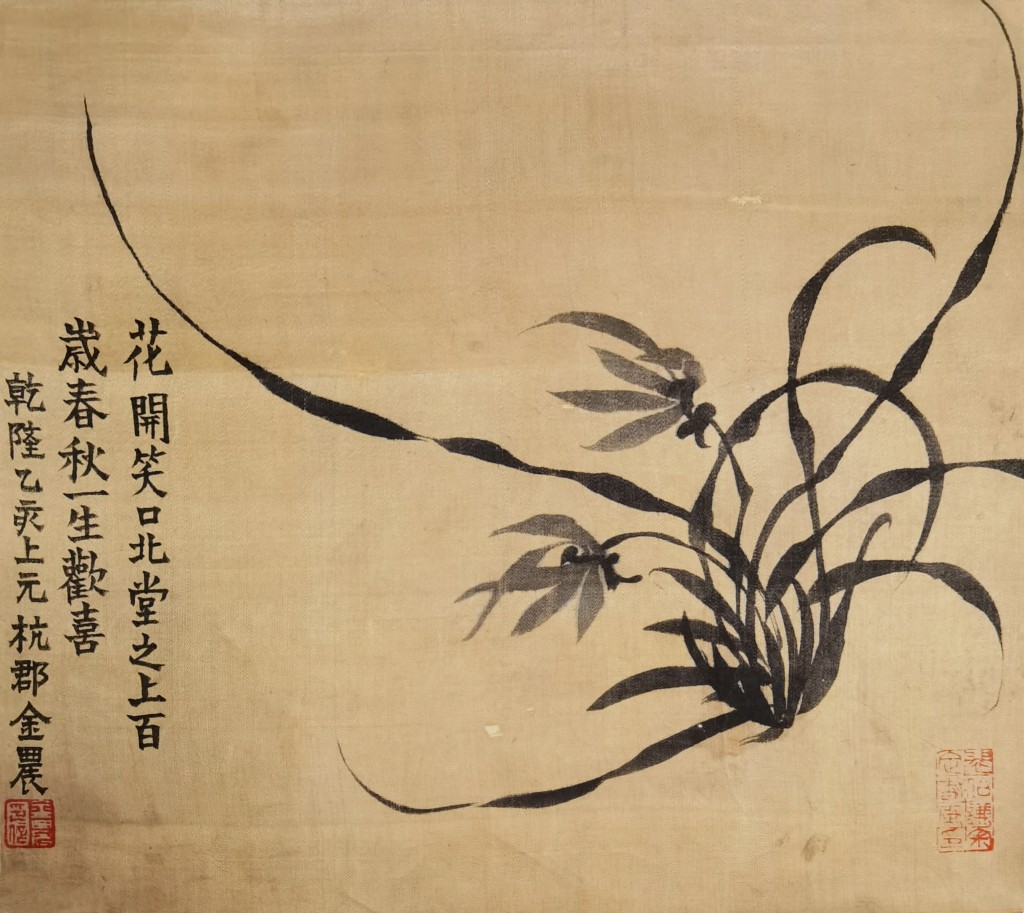 花開笑口北堂之上百
歳春秋一生歡喜
乾隆乙亥上元杭郡金農